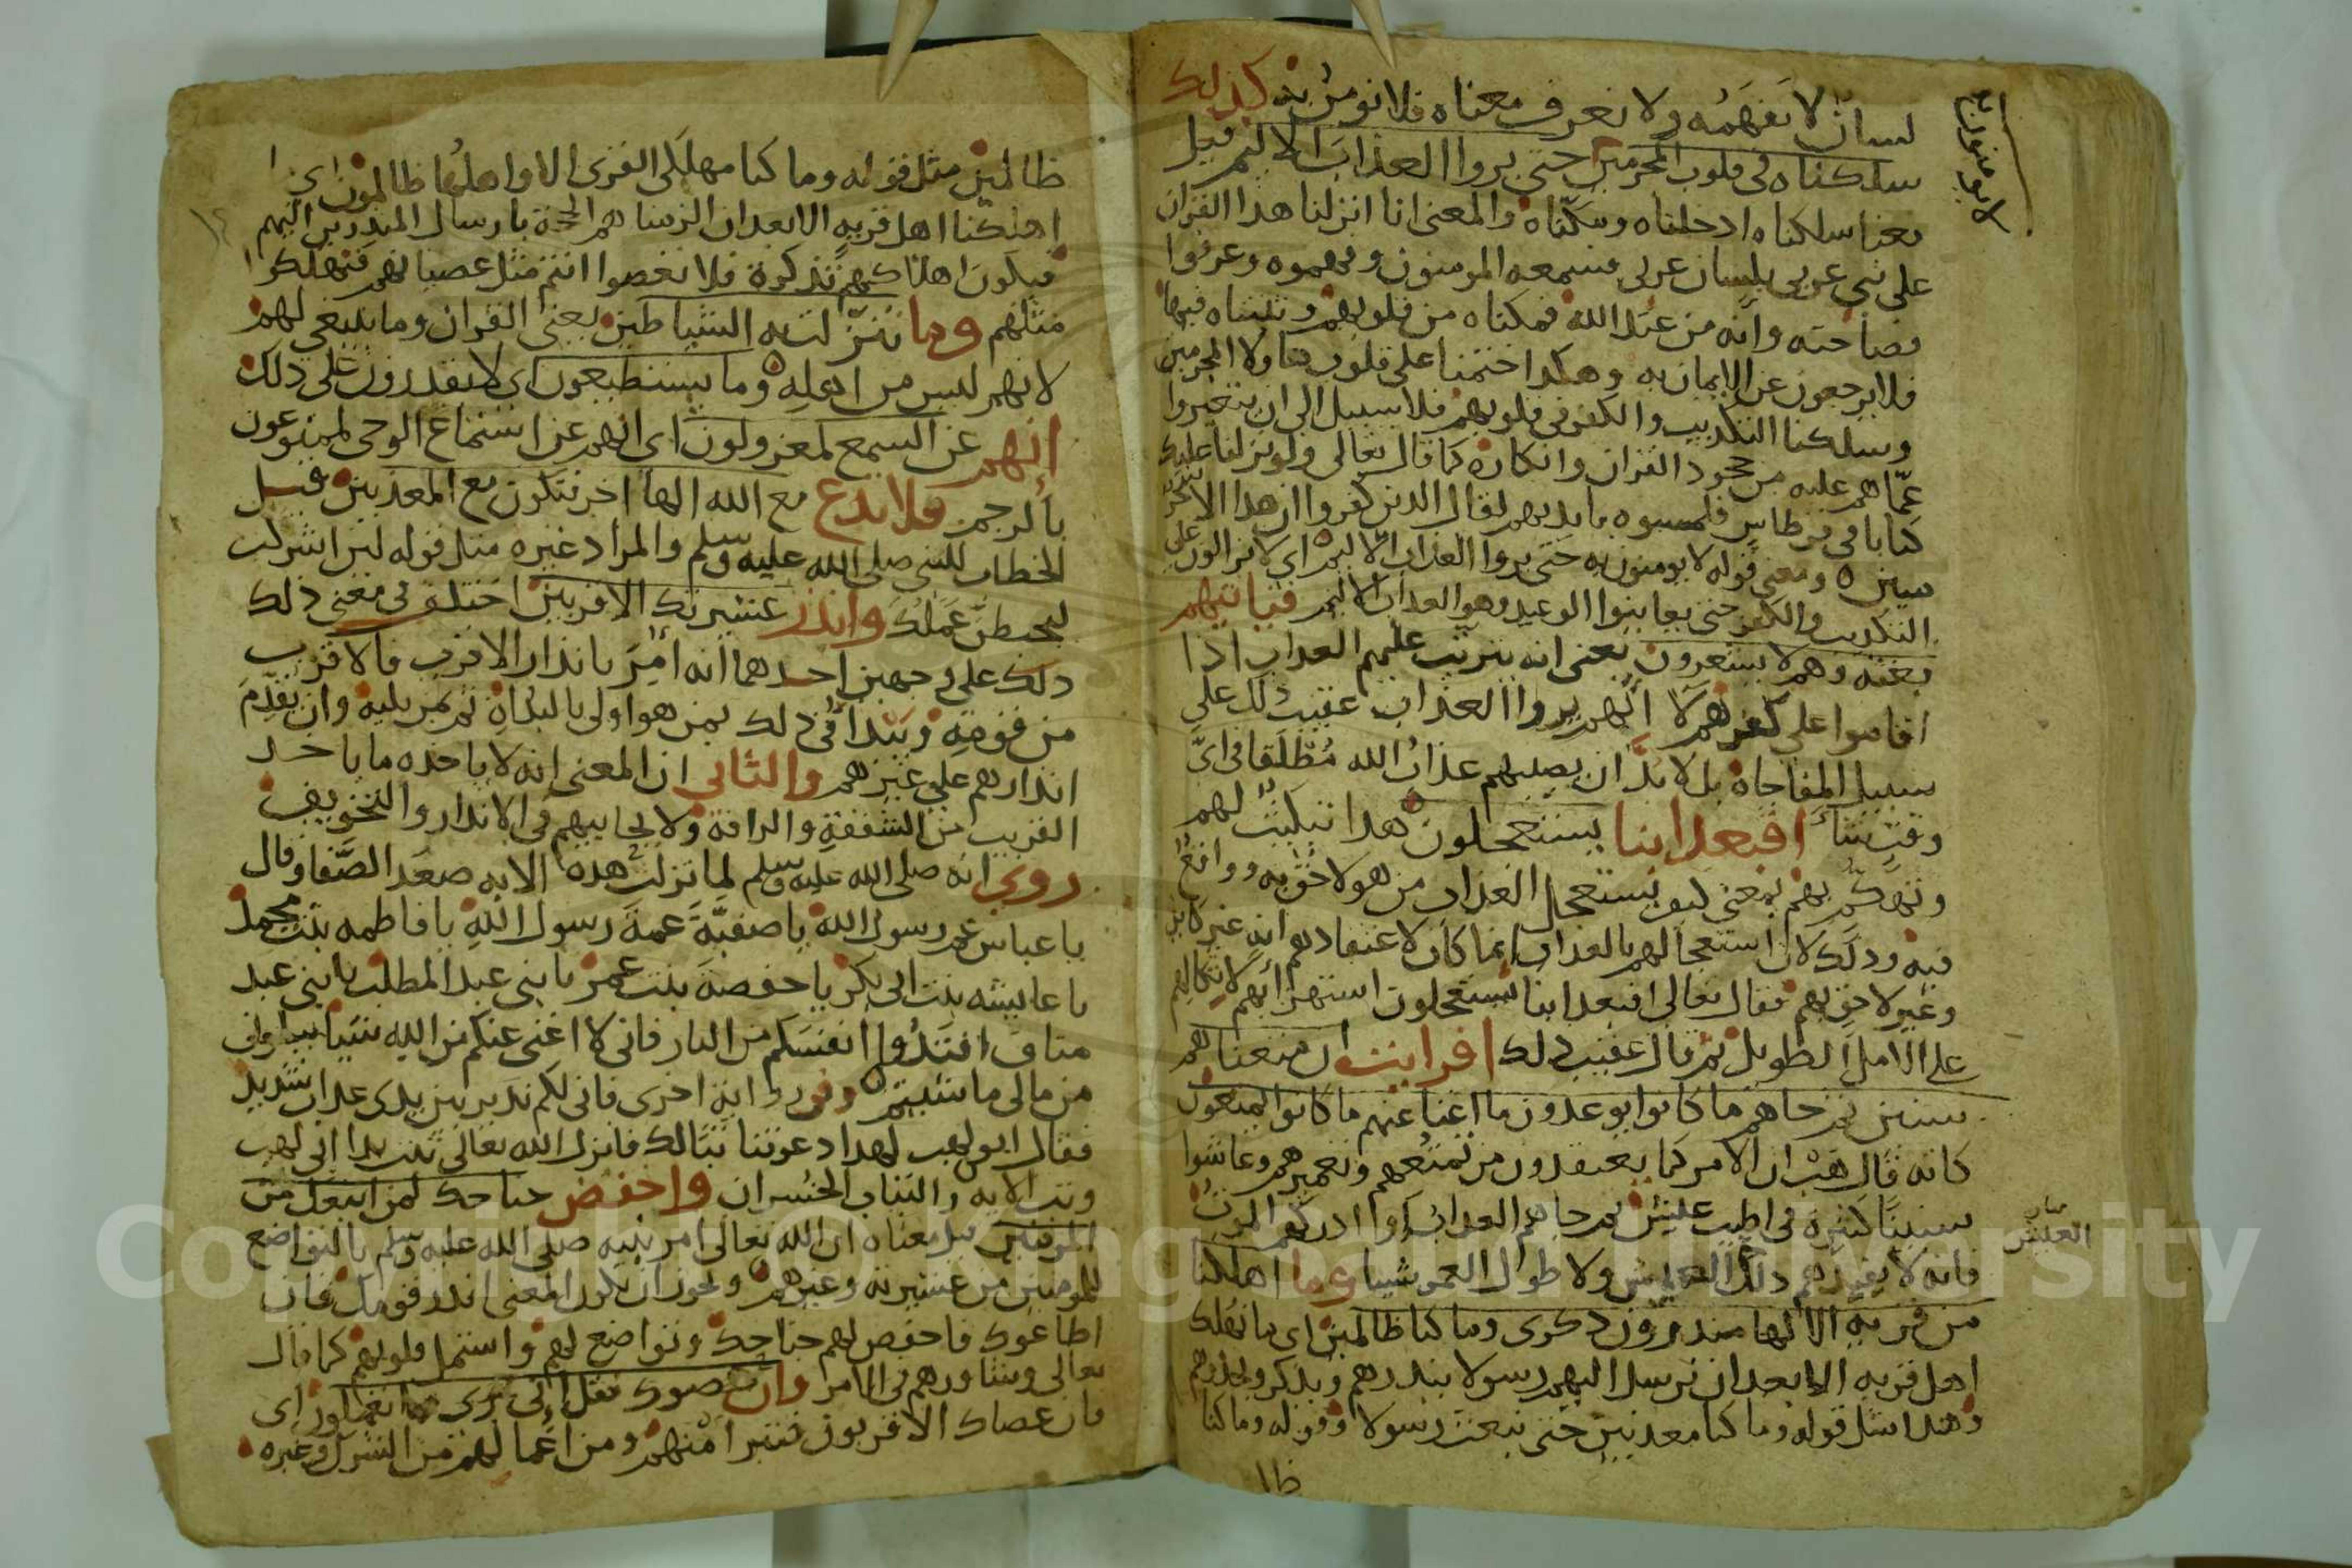 لسان لا نفهمه ولا نعرف معناه فلا نومن به كذلك
سلكناه في قلوب المجرمين حتى يروا العذاب الاليم قيل
لا يومنون به
معنا سلكناه ادخلناه ومكناه والمعنى انا انزلنا هذا القران
على نبي عربي بلسان عربي فسمعه المومنون وفهموه وعرفوا
فصاحته وانه من عند الله فمكناه من قلوبهم وثبتناه فيها
فلا يرجعون عن الايمان به وهكذا ختمنا على قلوب هاولا المجرمين
وسلكنا التكذيب والكفر في قلوبهم فلا سبيل الى ان يتغيروا
عمّا هم عليه من جحود القران وانكاره كما قال تعالى ولو نزلنا عليك
كتابا في قرطاس فلمسوه بايديهم لقال الذين كفروا ان هذا الا سحر
مبين ومعنى قوله لا يومنون به حتى يروا العذاب الاليم اي لا يزالون على
التكذيب والكفر حتى يعاينوا الوعيد وهو العذاب الاليم فياتيهم
بغتة وهم لا يشعرون يعني انه يترتب عليهم العذاب اذا
اقاموا على كفرهم لا انهم يروا العذاب عقيب ذلك على
سبيل المفاجاة بل لا بدّ ان يصيبهم عذاب الله مطلقا في ايّ
وقت شا افبعذابنا يستعجلون هذا تبكيت لهم
وتهكّم بهم بمعنى كيف يستعجل العذاب من هو لاحق به وواقع
فيه وذلك لان استعجالهم بالعذاب انما كان لاعتقادهم انه غير كاين
وغير لاحق بهم فقال تعالى افبعذابنا يستعجلون استهزابهم لاتكالهم
على الامل الطويل ثم قال عقيب ذلك افرايت ان متعناهم
سنين ثم جاهم ما كانوا يوعدون ما اغنا عنهم ما كانوا يمتعون
كانه قال هب ان الامر كما يعتقدون من تمتعهم وتعميرهم وعاشوا
سنينا كثيرة في اطيب عيش ثم جاهم العذاب وادركهم الموت
فانه لا يفيدهم ذلك العيش ولا طوال العمر شيا وما اهلكنا
العيش
من قرية الا لها منذرون ذكرى وما كنا ظالمين اي ما نهلك
اهل قرية الا بعد ان نرسل اليهم رسولا ينذرهم ويذكر ويحذرهم
وهذا مثل قوله وما كنا معذبين حتى نبعث رسولا وقوله وما كنا
ظا
ظالمين مثل قوله وما كنا مهلكى القرى الا واهلها ظالمون اي ما
اهلكنا اهل قرية الا بعد ان الزمناهم الحجة بارسال المنذرين اليهم
فيكون اهلاكهم تذكرة فلا تعصوا انتم مثل عصيانهم فتهلكوا
مثلهم وما تنزلت به الشياطين يعني القران وما ينبغي لهم
لانهم ليس من اهله وما يستطيعون اى لا يقدرون على ذلك
انهم عن السمع لمعزولون اى انهم عن استماع الوحى لممنوعون
بالرجم فلا تدع مع الله الها اخر فتكون مع المعذبين قيل
الخطاب للنبي صلى الله عليه وسلم والمراد غيره مثل قوله لين اشركت
ليحبطن عملك وانذر عشيرتك الاقربين اختلف في معنى ذلك
ذلك على وجهين احدهما انه امر بانذار الاقرب فالاقرب
من قومه ويبدا في ذلك بمن هو اولى بالبداة ثم بمن يليه وان يقدم
انذارهم على غيرهم والثاني ان المعنى انه لا ياخذه ما ياخذ
القريب من الشفقة والرافة ولا يحابيهم في الانذار والتخويف
روي انه صلى الله عليه وسلم لما نزلت هذه الاية صعد الصفا وقال
يا عباس عم رسول الله يا صفيّة عمة رسول الله يا فاطمه بنت محمد
يا عايشه بنت ابى بكر يا حفصة بنت عمر يا بنى عبد المطلب يا بني عبد
مناف افتدوا انفسكم من النار فانى لا اغنى عنكم من الله شيا سلونى
من مالى ما شيتم وفي رواية اخرى فانى لكم نذير بين يدى عذاب شديد
فقال ابو لهب لهذا دعوتنا تبا لك فانزل الله تعالى تبت يدا ابي لهب
وتب الاية والتباب الخسران واخفض جناحك لمن اتبعك من
المومنين قيل معناه ان الله تعالى امر نبيه صلى الله عليه وسلم بالتواضع
للمومنين من عشيرته وغيرهم ويجوز ان يكون المعنى انذر قومك فان
اطاعوك فاخفض لهم جناحك وتواضع لهم واستمل قلوبهم كما قال
تعالى وشاورهم في الامر وان عصوك فقل انى برى مما تعملون اى
فان عصاك الاقربون فتبرا منهم ومن اعمالهم من الشرك وغيره